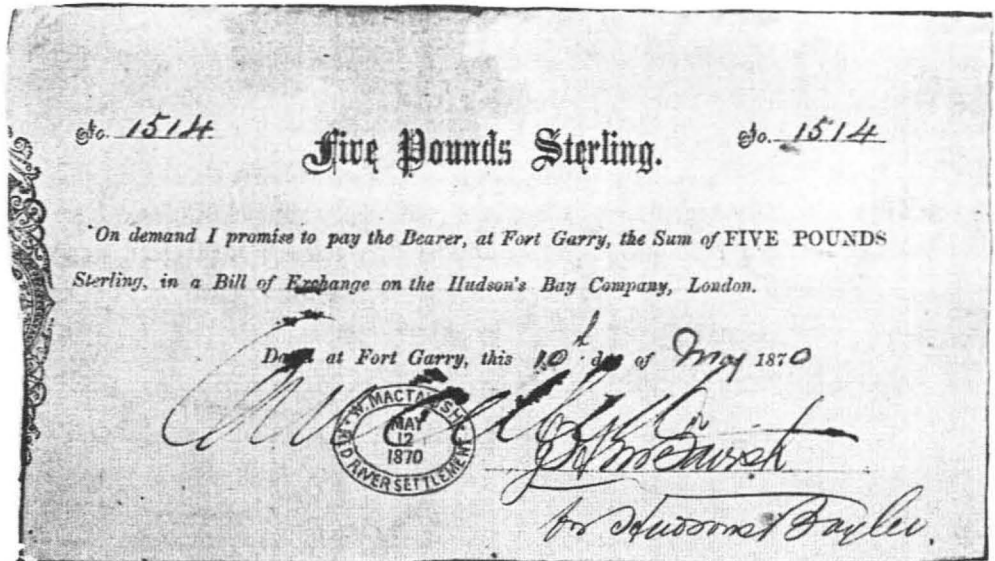 No. 1514 No. 1514
Five Pounds Sterling.
On demand I promise to pay the Bearer, at Fort Garry, the Sum of FIVE POUNDS
Sterling, in a Bill of Exchange on the Hudson's Bay Company, London.
Dated at Fort Garry, this 10th day of May 1870
W. MACTAVISH
MAY
12
1870
RED RIVER SETTLEMENT
for Hudsons Bay